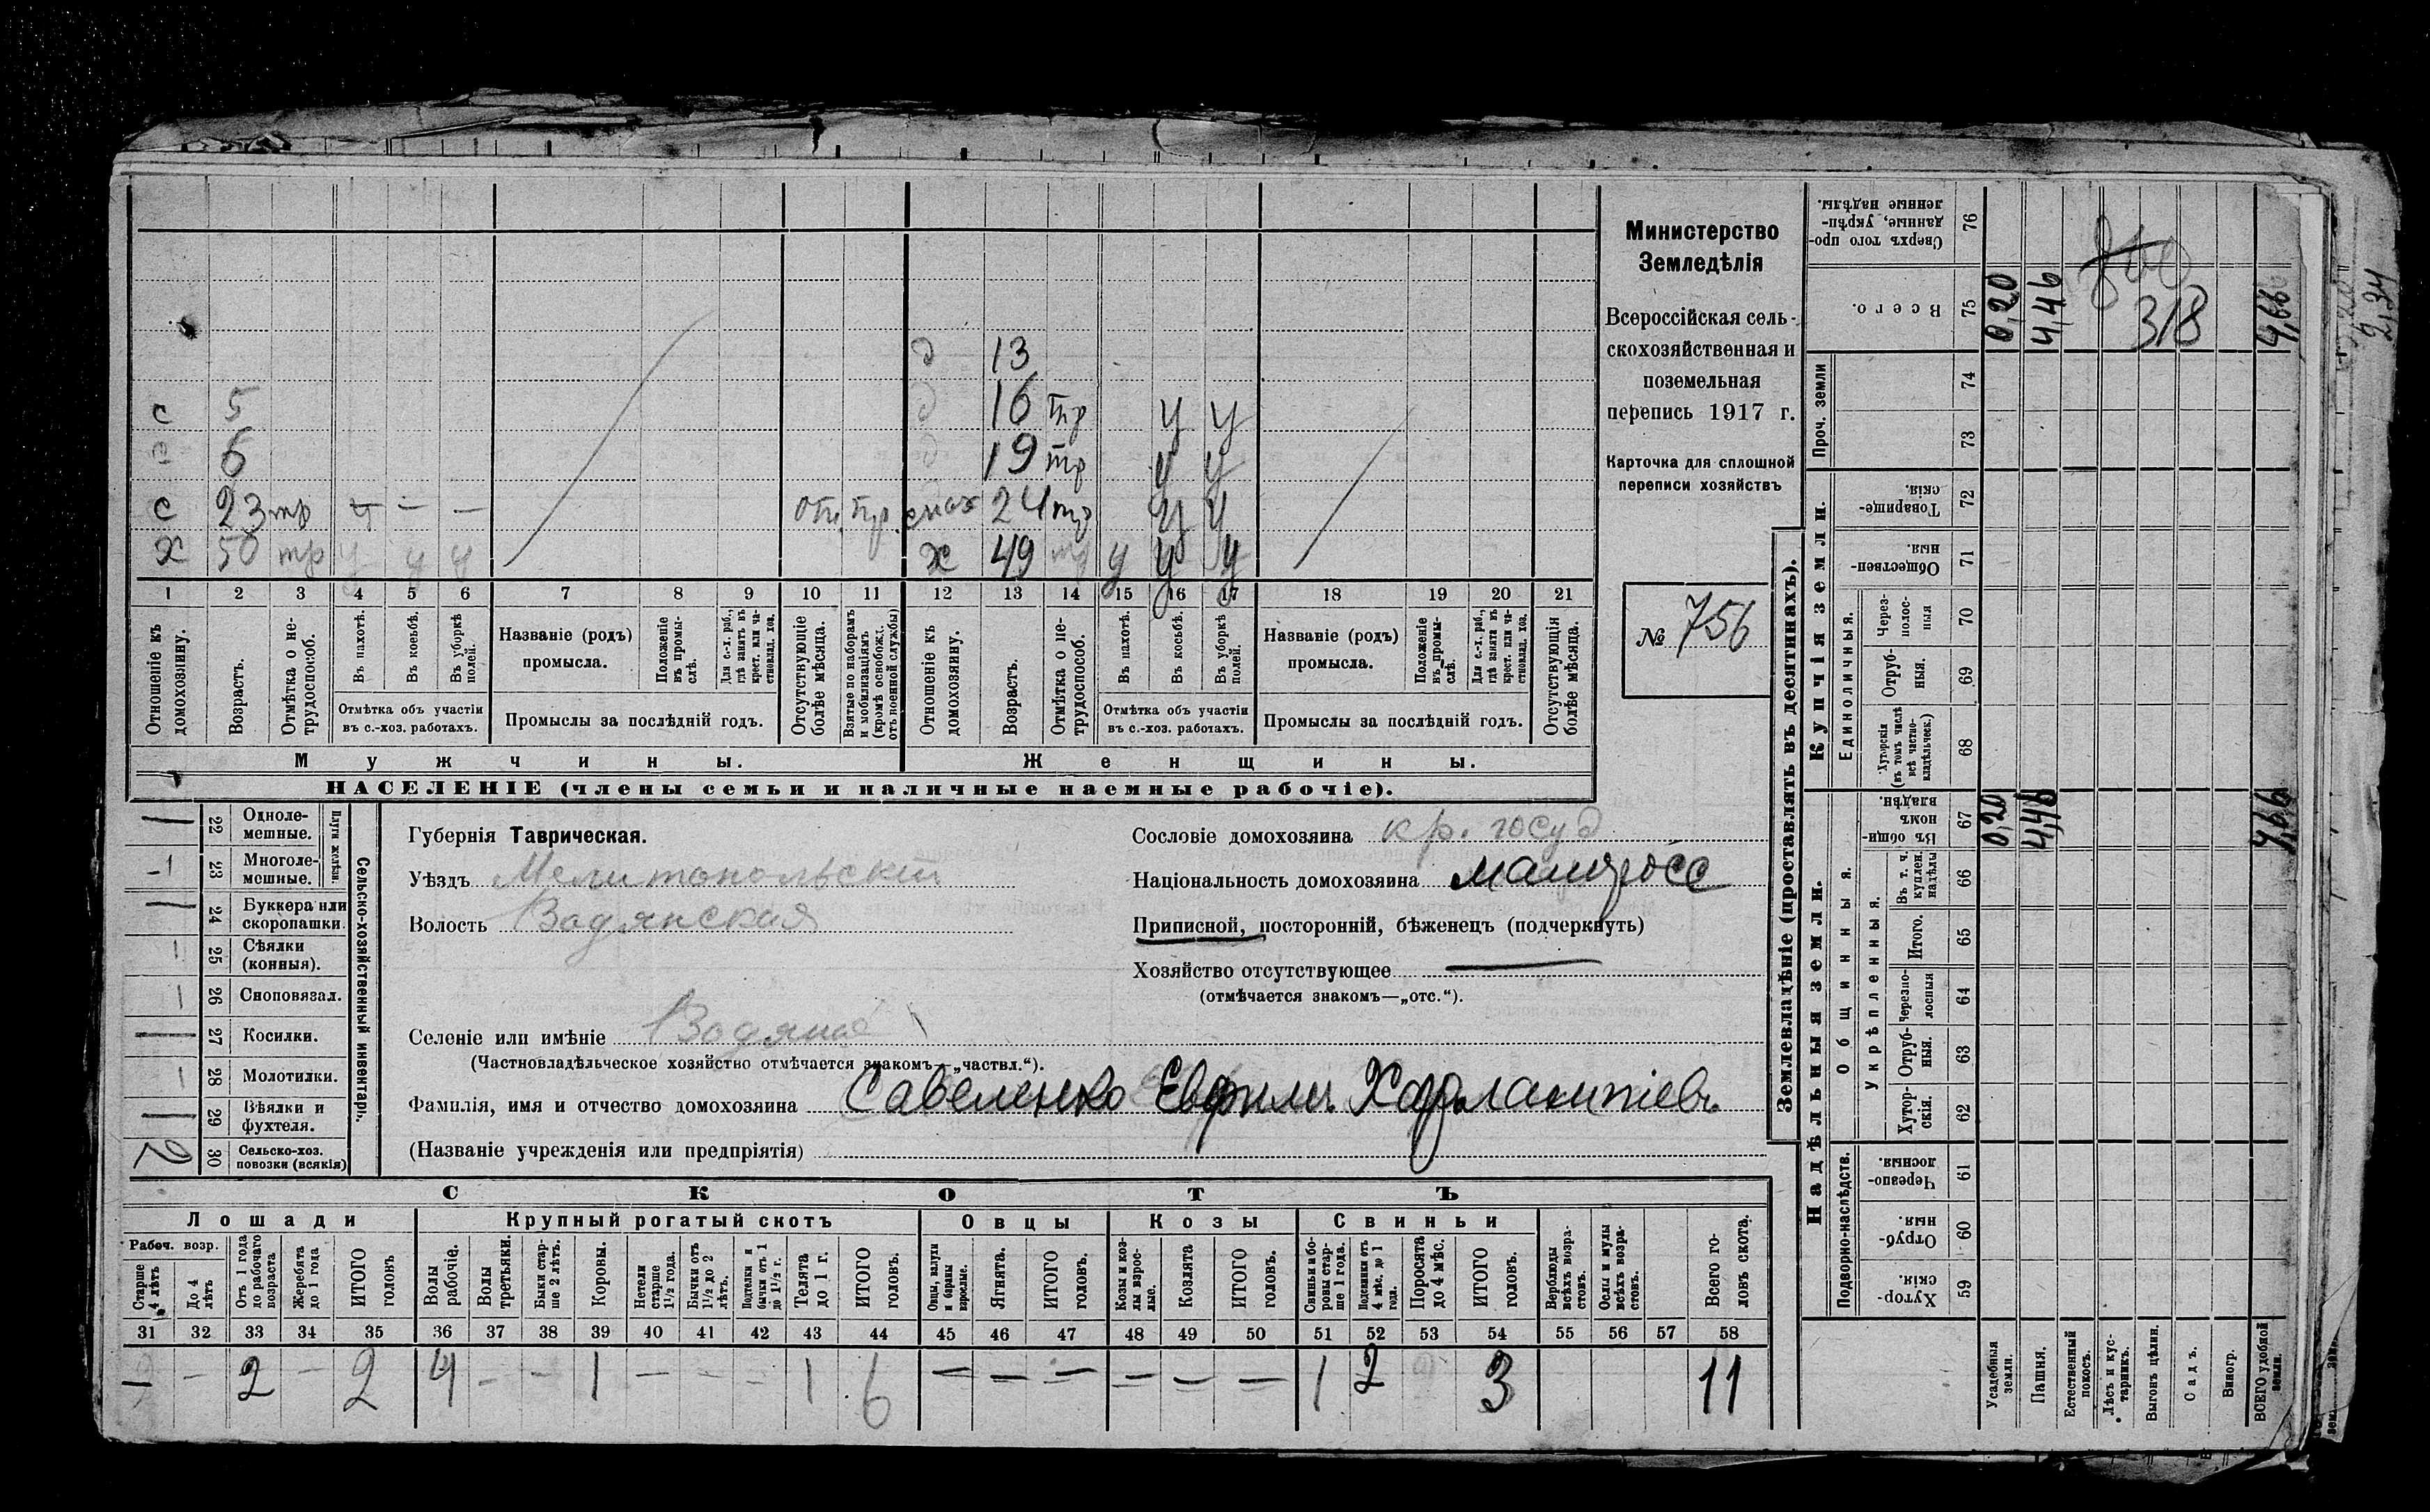 Министерство
Земледѣлія
Всероссійская сель-
скохозяйственная и
поземельная
перепись 1917 г.
Карточка для сплошной
переписи хозяйствъ
№ 756
д 13
с 5 д 16 тр у у
6 д 19 тр у у
с 23 тр ч — — отс. тр. снох 24 тр у у
х 50 тр у у у х 49 тр у у у
1 2 3 4 5 6 7 8 9 10 11 12 13 14 15 16 17 18 19 20 21
Отношеніе къ домохозяину.
Возрастъ.
Отмѣтка о не-трудоспособ.
Въ пахотѣ.
Въ косьбѣ.
Въ уборкѣ полей.
Отмѣтка объ участіи
въ с.-хоз. работахъ.
Названіе (родъ)
промысла.
Положеніе въ промы-слѣ.
Для с.-х. раб., гдѣ занятъ въ крест. или ча-стновлад. хоз.
Промыслы за послѣдній годъ.
Отсутствующіе болѣе мѣсяца.
Взятые по наборамъ и мобилизаціямъ (кромѣ освобожд. отъ военной службы)
Отношеніе къ домохозяину.
Возрастъ.
Отмѣтка о не-трудоспособ.
Въ пахотѣ.
Въ косьбѣ.
Въ уборкѣ полей.
Отмѣтка объ участіи
въ с.-хоз. работахъ.
Названіе (родъ)
промысла.
Положеніе въ промы-слѣ.
Для с.-х. раб., гдѣ занята въ крест. или ча-стновлад. хоз.
Промыслы за послѣдній годъ.
Отсутствующія болѣе мѣсяца.
Мужчины. Женщины.
НАСЕЛЕНІЕ (члены семьи и наличные наемные рабочіе).
Сельско-хозяйственный инвентарь.
Плуги желѣзн.
— 22 Одноле-мешные.
1 23 Многоле-мешные.
— 24 Буккера или скоропашки.
1 25 Сѣялки (конныя).
1 26 Сноповязал.
— 27 Косилки.
1 28 Молотилки.
— 29 Вѣялки и фухтеля.
2 30 Сельско-хоз. повозки (всякія)
Губернія Таврическая.
Уѣздъ Мелитопольскій
Волость Водянская
Селеніе или имѣніе Водяное
(Частновладѣльческое хозяйство отмѣчается знакомъ—„частвл.“).
Фамилія, имя и отчество домохозяина Савеленко Евфим. Харлампіев.
(Названіе учрежденія или предпріятія)
Сословіе домохозяина кр. госуд
Національность домохозяина малоросс
Приписной, посторонній, бѣженецъ (подчеркнуть)
Хозяйство отсутствующее —
(отмѣчается знакомъ—„отс.“).
СКОТЪ
Лошади Крупный рогатый скотъ Овцы Козы Свиньи
Рабоч. возр.
Старше 4 лѣтъ
До 4 лѣтъ
Отъ 1 года до рабочаго возраста
Жеребята до 1 года
ИТОГО головъ
Волы рабочіе.
Волы третьяки.
Быки стар-ше 2 лѣтъ.
Коровы.
Нетели старше 1½ года.
Бычки отъ 1½ до 2 лѣтъ.
Подтелки и бычки отъ 1 до 1½ г.
Телята до 1 г.
ИТОГО головъ.
Овцы, валухи и бараны взрослые.
Ягнята.
ИТОГО головъ.
Козы и коз-лы взрос-лые.
Козлята
ИТОГО головъ.
Свиньи и бо-ровы стар-ше 1 года.
Подсвинки отъ 4 мѣс. до 1 года.
Поросята до 4 мѣс.
ИТОГО головъ.
Верблюды всѣхъ возра-стовъ.
Ослы и мулы всѣхъ возра-стовъ.
Всего го-ловъ скота.
31 32 33 34 35 36 37 38 39 40 41 42 43 44 45 46 47 48 49 50 51 52 53 54 55 56 57 58
— — 2 — 2 4 — — 1 — — — 1 6 — — — — — — 1 2 3 11
Землевладѣніе (проставлять въ десятинахъ).
Надѣльныя земли. Купчія земли.
Проч. земли
Подворно-наслѣдств. Общинныя. Единоличныя.
Укрѣпленныя.
Сверхъ того про-данные, укрѣп-ленные надѣлы. 76
Всего. 75 0,20 4,46 318 4,66
74
73
Товарище-скія. 72
Обществен-ныя. 71
Через-полос-ныя 70
Отруб-ныя. 69
Хуторскія (въ томъ числѣ всѣ частно-владѣльческ.) 68
Въ общи-номъ владѣн. 67 0,20 4,46 4,66
Въ т. ч. куплен. надѣлы 66
Итого. 65
Черезпо-лосныя 64
Отруб-ныя. 63
Хутор-скія. 62
Черезпо-лосныя. 61
Отруб-ныя. 60
Хутор-скія. 59
Усадебныя земли.
Пашня.
Естественный покосъ.
Лѣсъ и кус-тарникъ.
Выгонъ цѣлин.
Садъ.
Виногр.
ВСЕГО удобной земли.